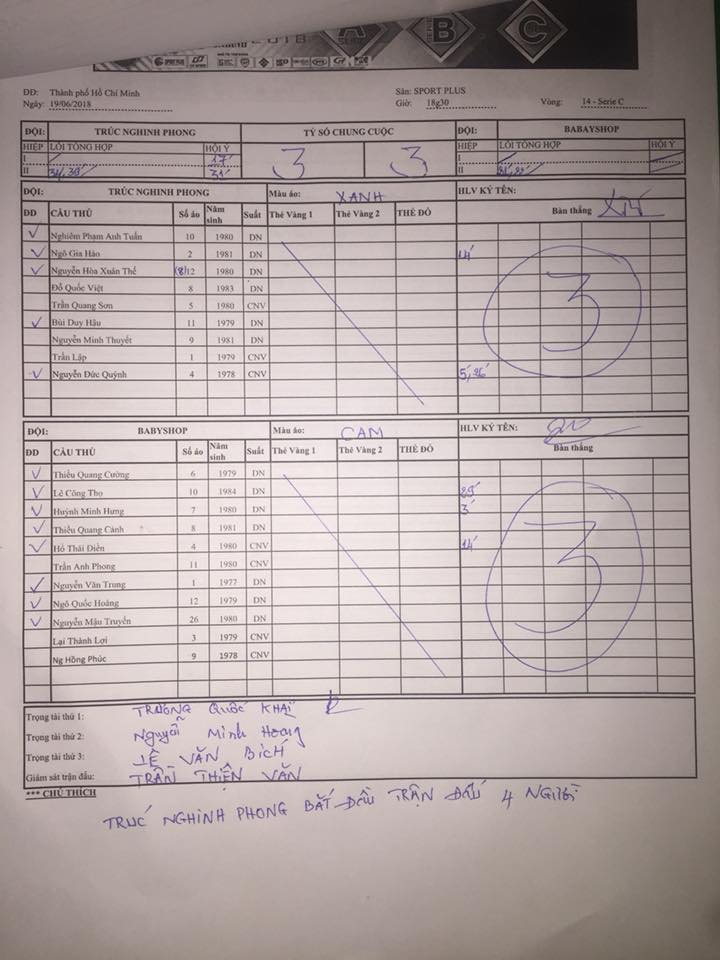 2018
A
B
C
ĐĐ: Thành phố Hồ Chí Minh Sân: SPORT PLUS
Ngày: 19/06/2018 Giờ: 18g30 Vòng: 14 - Serie C
ĐỘI: TRÚC NGHINH PHONG TỶ SỐ CHUNG CUỘC ĐỘI: BABAYSHOP
HIỆP LỖI TỔNG HỢP HỘI Ý 3 3 HIỆP LỖI TỔNG HỢP HỘI Ý
I 17' I
II 31' II
ĐỘI: TRÚC NGHINH PHONG Màu áo: XANH HLV KÝ TÊN:
ĐD CẦU THỦ Số áo Năm sinh Suất Thẻ Vàng 1 Thẻ Vàng 2 THẺ ĐỎ Bàn thắng
Nghiêm Phạm Anh Tuấn 10 1980 DN
Ngô Gia Hào 2 1981 DN 14'
Nguyễn Hòa Xuân Thế (8)12 1980 DN
Đỗ Quốc Việt 8 1983 DN
Trần Quang Sơn 5 1980 CNV
Bùi Duy Hậu 11 1979 DN
Nguyễn Minh Thuyết 9 1981 DN
Trần Lập 1 1979 CNV
Nguyễn Đức Quỳnh 4 1978 CNV 5', 26'
3
ĐỘI: BABYSHOP Màu áo: CAM HLV KÝ TÊN:
ĐD CẦU THỦ Số áo Năm sinh Suất Thẻ Vàng 1 Thẻ Vàng 2 THẺ ĐỎ Bàn thắng
Thiều Quang Cường 6 1979 DN
Lê Công Thọ 10 1984 DN 29'
Huỳnh Minh Hưng 7 1980 DN 3'
Thiều Quang Cảnh 8 1981 DN
Hồ Thái Điền 4 1980 CNV 14'
Trần Anh Phong 11 1980 CNV
Nguyễn Văn Trung 1 1977 DN
Ngô Quốc Hoàng 12 1979 DN
Nguyễn Mậu Truyền 26 1980 DN
Lại Thành Lợi 3 1979 CNV
Ng Hồng Phúc 9 1978 CNV
3
Trọng tài thứ 1: TRƯƠNG QUỐC KHẢI
Trọng tài thứ 2: Nguyễn Minh Hoang
Trọng tài thứ 3: LÊ VĂN BÍCH
Giám sát trận đấu: TRẦN THIỆN VĂN
*** CHÚ THÍCH
TRÚC NGHINH PHONG BẮT ĐẦU TRẬN ĐẤU 4 NGƯỜI